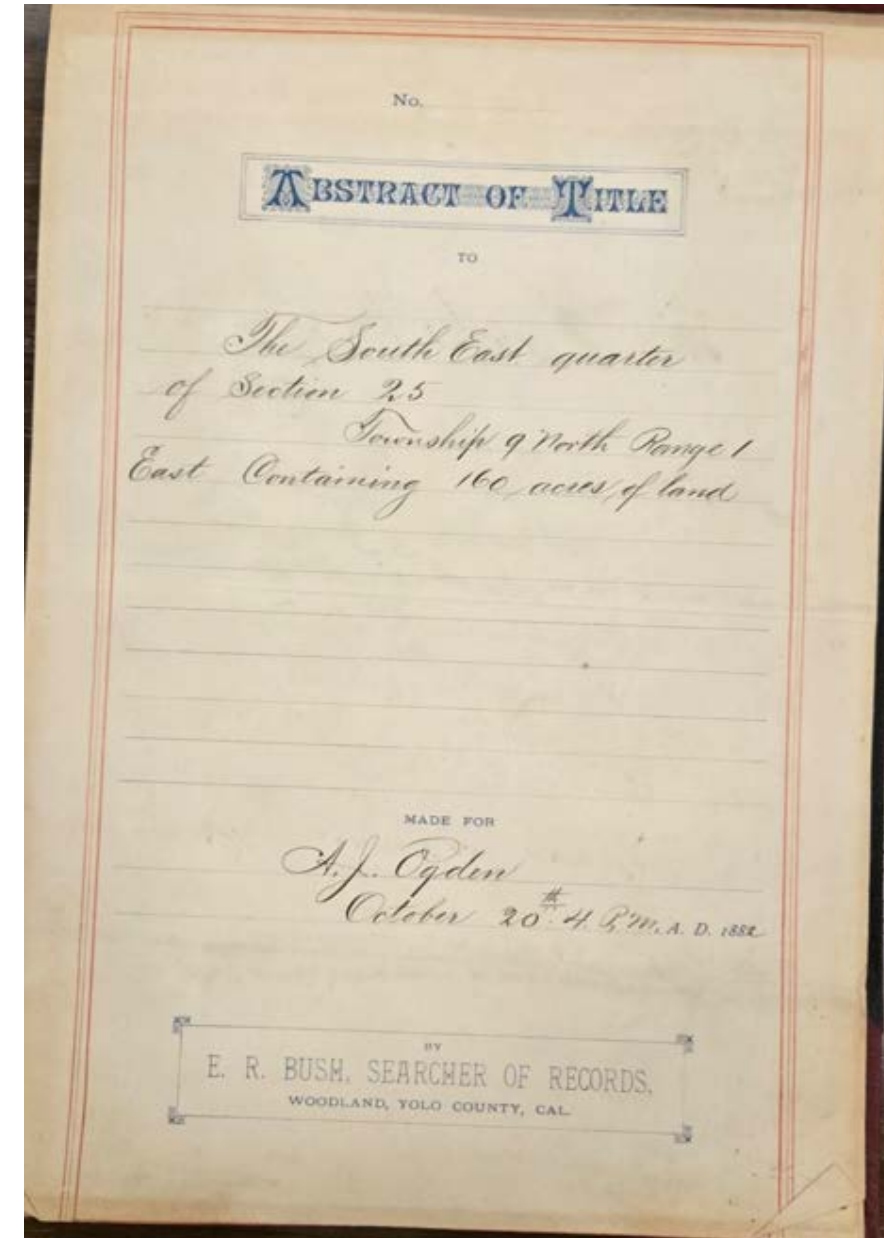 No.
ABSTRACT OF TITLE
TO
The South East quarter
of Section 25
Township 9 North Range 1
East Containing 160 acres of land
MADE FOR
A. J. Ogden
October 20th. 4 P.M. A. D. 1882
BY
E. R. BUSH, SEARCHER OF RECORDS,
WOODLAND, YOLO COUNTY, CAL.